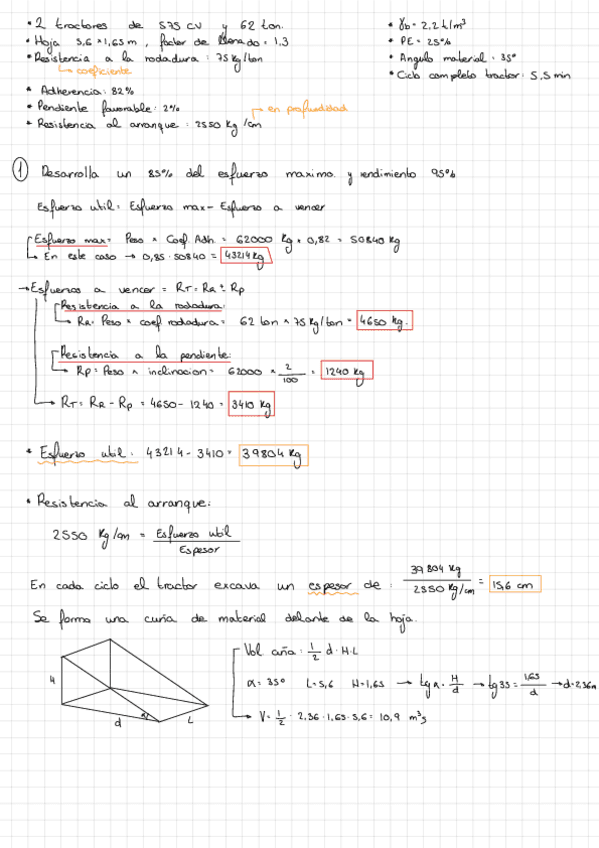 • 2 tractores de 575 CV y 62 ton.
• Hoja 5,6 × 1,65 m, factor de llenado = 1.3
• Resistencia a la rodadura: 75 kg/ton
↳ coeficiente
• Adherencia: 82%
• Pendiente favorable: 2%
• Resistencia al arranque: 2550 kg/cm
↳ en profundidad
• γb = 2,2 t/m³
• PE = 25%
• Angulo material: 35°
• Ciclo completo tractor: 5,5 min
① Desarrolla un 85% del esfuerzo maximo y rendimiento 95%
Esfuerzo util: Esfuerzo max - Esfuerzo a vencer
Esfuerzo max = Peso × Coef. Adh. = 62000 kg × 0,82 = 50840 kg
↳ En este caso → 0,85 · 50840 = 43214 kg
→ Esfuerzos a vencer = RT = RR ± Rp
Resistencia a la rodadura:
↳ RR = Peso × coef rodadura = 62 ton × 75 kg/ton = 4650 kg.
Resistencia a la pendiente:
↳ Rp = Peso × inclinacion = 62000 × 2/100 = 1240 kg
↳ RT = RR - Rp = 4650 - 1240 = 3410 kg
• Esfuerzo util: 43214 - 3410 = 39804 kg
• Resistencia al arranque:
2550 kg/cm = Esfuerzo util / Espesor
En cada ciclo el tractor excava un espesor de: 39804 kg / 2550 kg/cm = 15,6 cm
Se forma una cuña de material delante de la hoja.
Vol cuña: 1/2 d · H · L
α = 35° L = 5,6 H = 1,65 → tg α = H/d → tg 35 = 1,65/d → d = 2,36m
↳ V = 1/2 · 2,36 · 1,65 · 5,6 = 10,9 m³s
H
d
α
L